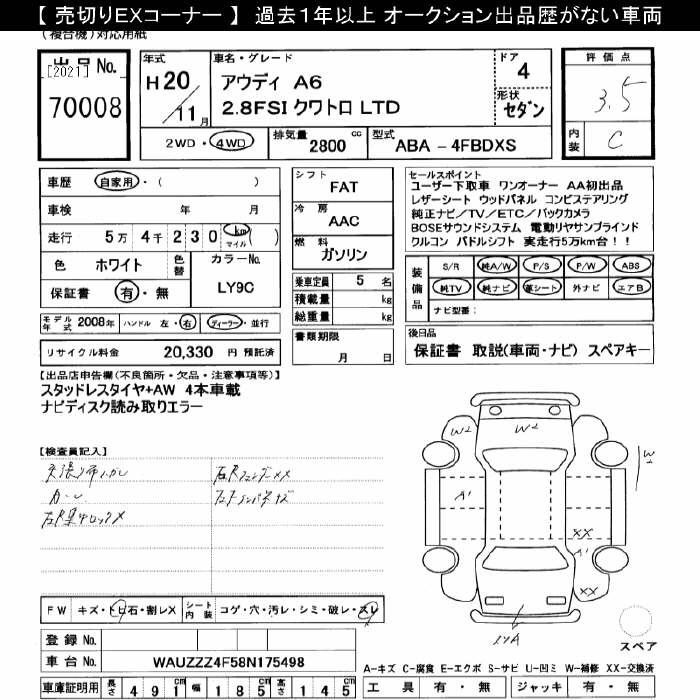 【 売切りEXコーナー 】 過去1年以上 オークション出品歴がない車両
(複合機)対応用紙
出品No.
[2021]
70008
年式
H20
11月
車名・グレード
アウディ A6
2.8FSI クワトロ LTD
ドア
4
形状
セダン
評価点
3.5
内装
C
2WD・4WD
排気量
2800 cc
型式
ABA - 4FBDXS
車歴 自家用・( )
車検 年 月
走行 5万 4千 230 km マイル ( )
色 ホワイト 色替 カラーNo.
保証書 有・無 LY9C
モデル年式 2008年 ハンドル 左・右 ディーラー・並行
リサイクル料金 20,330 円 預託済
シフト
FAT
冷房
AAC
燃料
ガソリン
乗車定員 5 名
積載量 kg
総重量 kg
書類期限
月 日
セールスポイント
ユーザー下取車 ワンオーナー AA初出品
レザーシート ウッドパネル コンビステアリング
純正ナビ/TV/ETC/バックカメラ
BOSEサウンドシステム 電動リヤサンブラインド
クルコン パドルシフト 実走行5万km台！！
装備品
S/R 純A/W P/S P/W ABS
純TV 純ナビ 革シート 外ナビ エアB
ナビ型番:
後日品
保証書 取説(車両・ナビ) スペアキー
【出品店申告欄(不良箇所・欠品・注意事項等)】
スタッドレスタイヤ+AW 4本車載
ナビディスク読み取りエラー
【検査員記入】
W2
W2
W2
A'
A'
XX
A'
XX
FW キズ・トビ石・割レX シート内装 コゲ・穴・汚レ・シミ・破レ・スレ
スペア
登録No.
車台No. WAUZZZ4F58N175498
車庫証明用 長さ 491 幅 185 高さ 145
A-キズ C-腐食 E-エクボ S-サビ U-凹ミ W-補修 XX-交換済
工具 有・無 ジャッキ 有・無